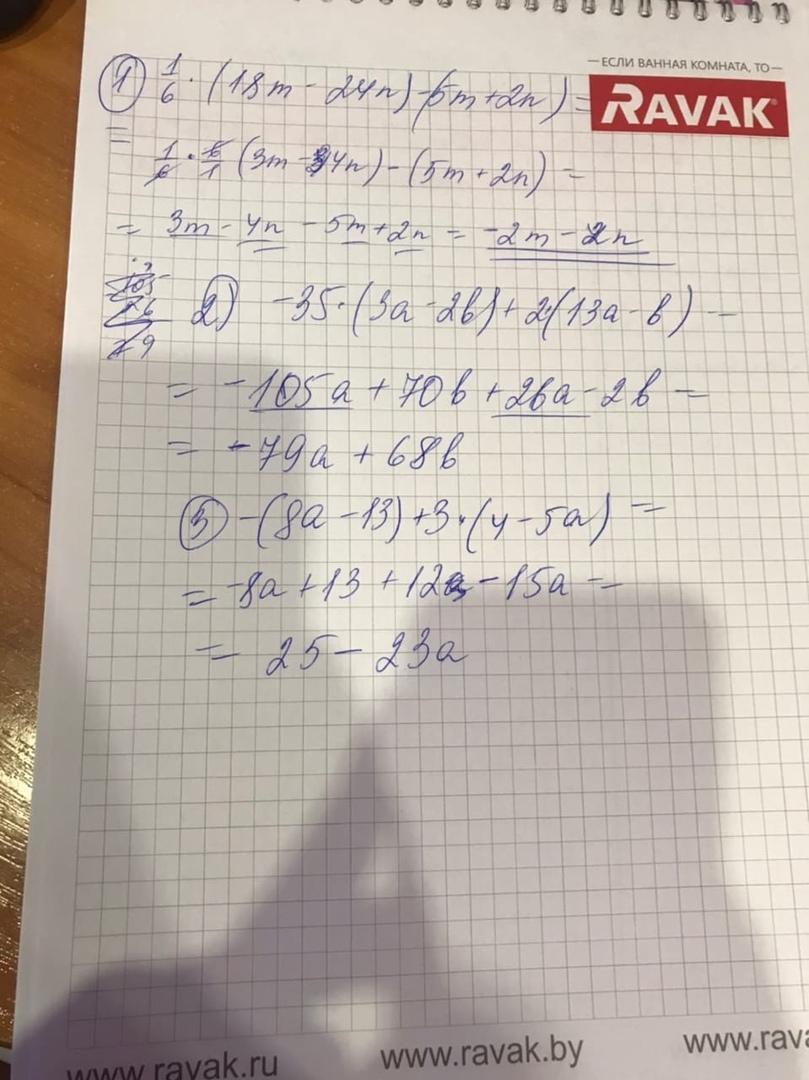 — ЕСЛИ ВАННАЯ КОМНАТА, ТО —
RAVAK
1) 1/6 · (18m - 24n) - (5m + 2n) =
= 1/6 · 6/1 (3m - 4n) - (5m + 2n) =
= 3m - 4n - 5m + 2n = -2m - 2n
105
26
79
2) -35 · (3a - 2b) + 2 · (13a - b) =
= -105a + 70b + 26a - 2b =
= -79a + 68b
3) -(8a - 13) + 3 · (4 - 5a) =
= -8a + 13 + 12 - 15a =
= 25 - 23a
www.ravak.ru www.ravak.by www.rava